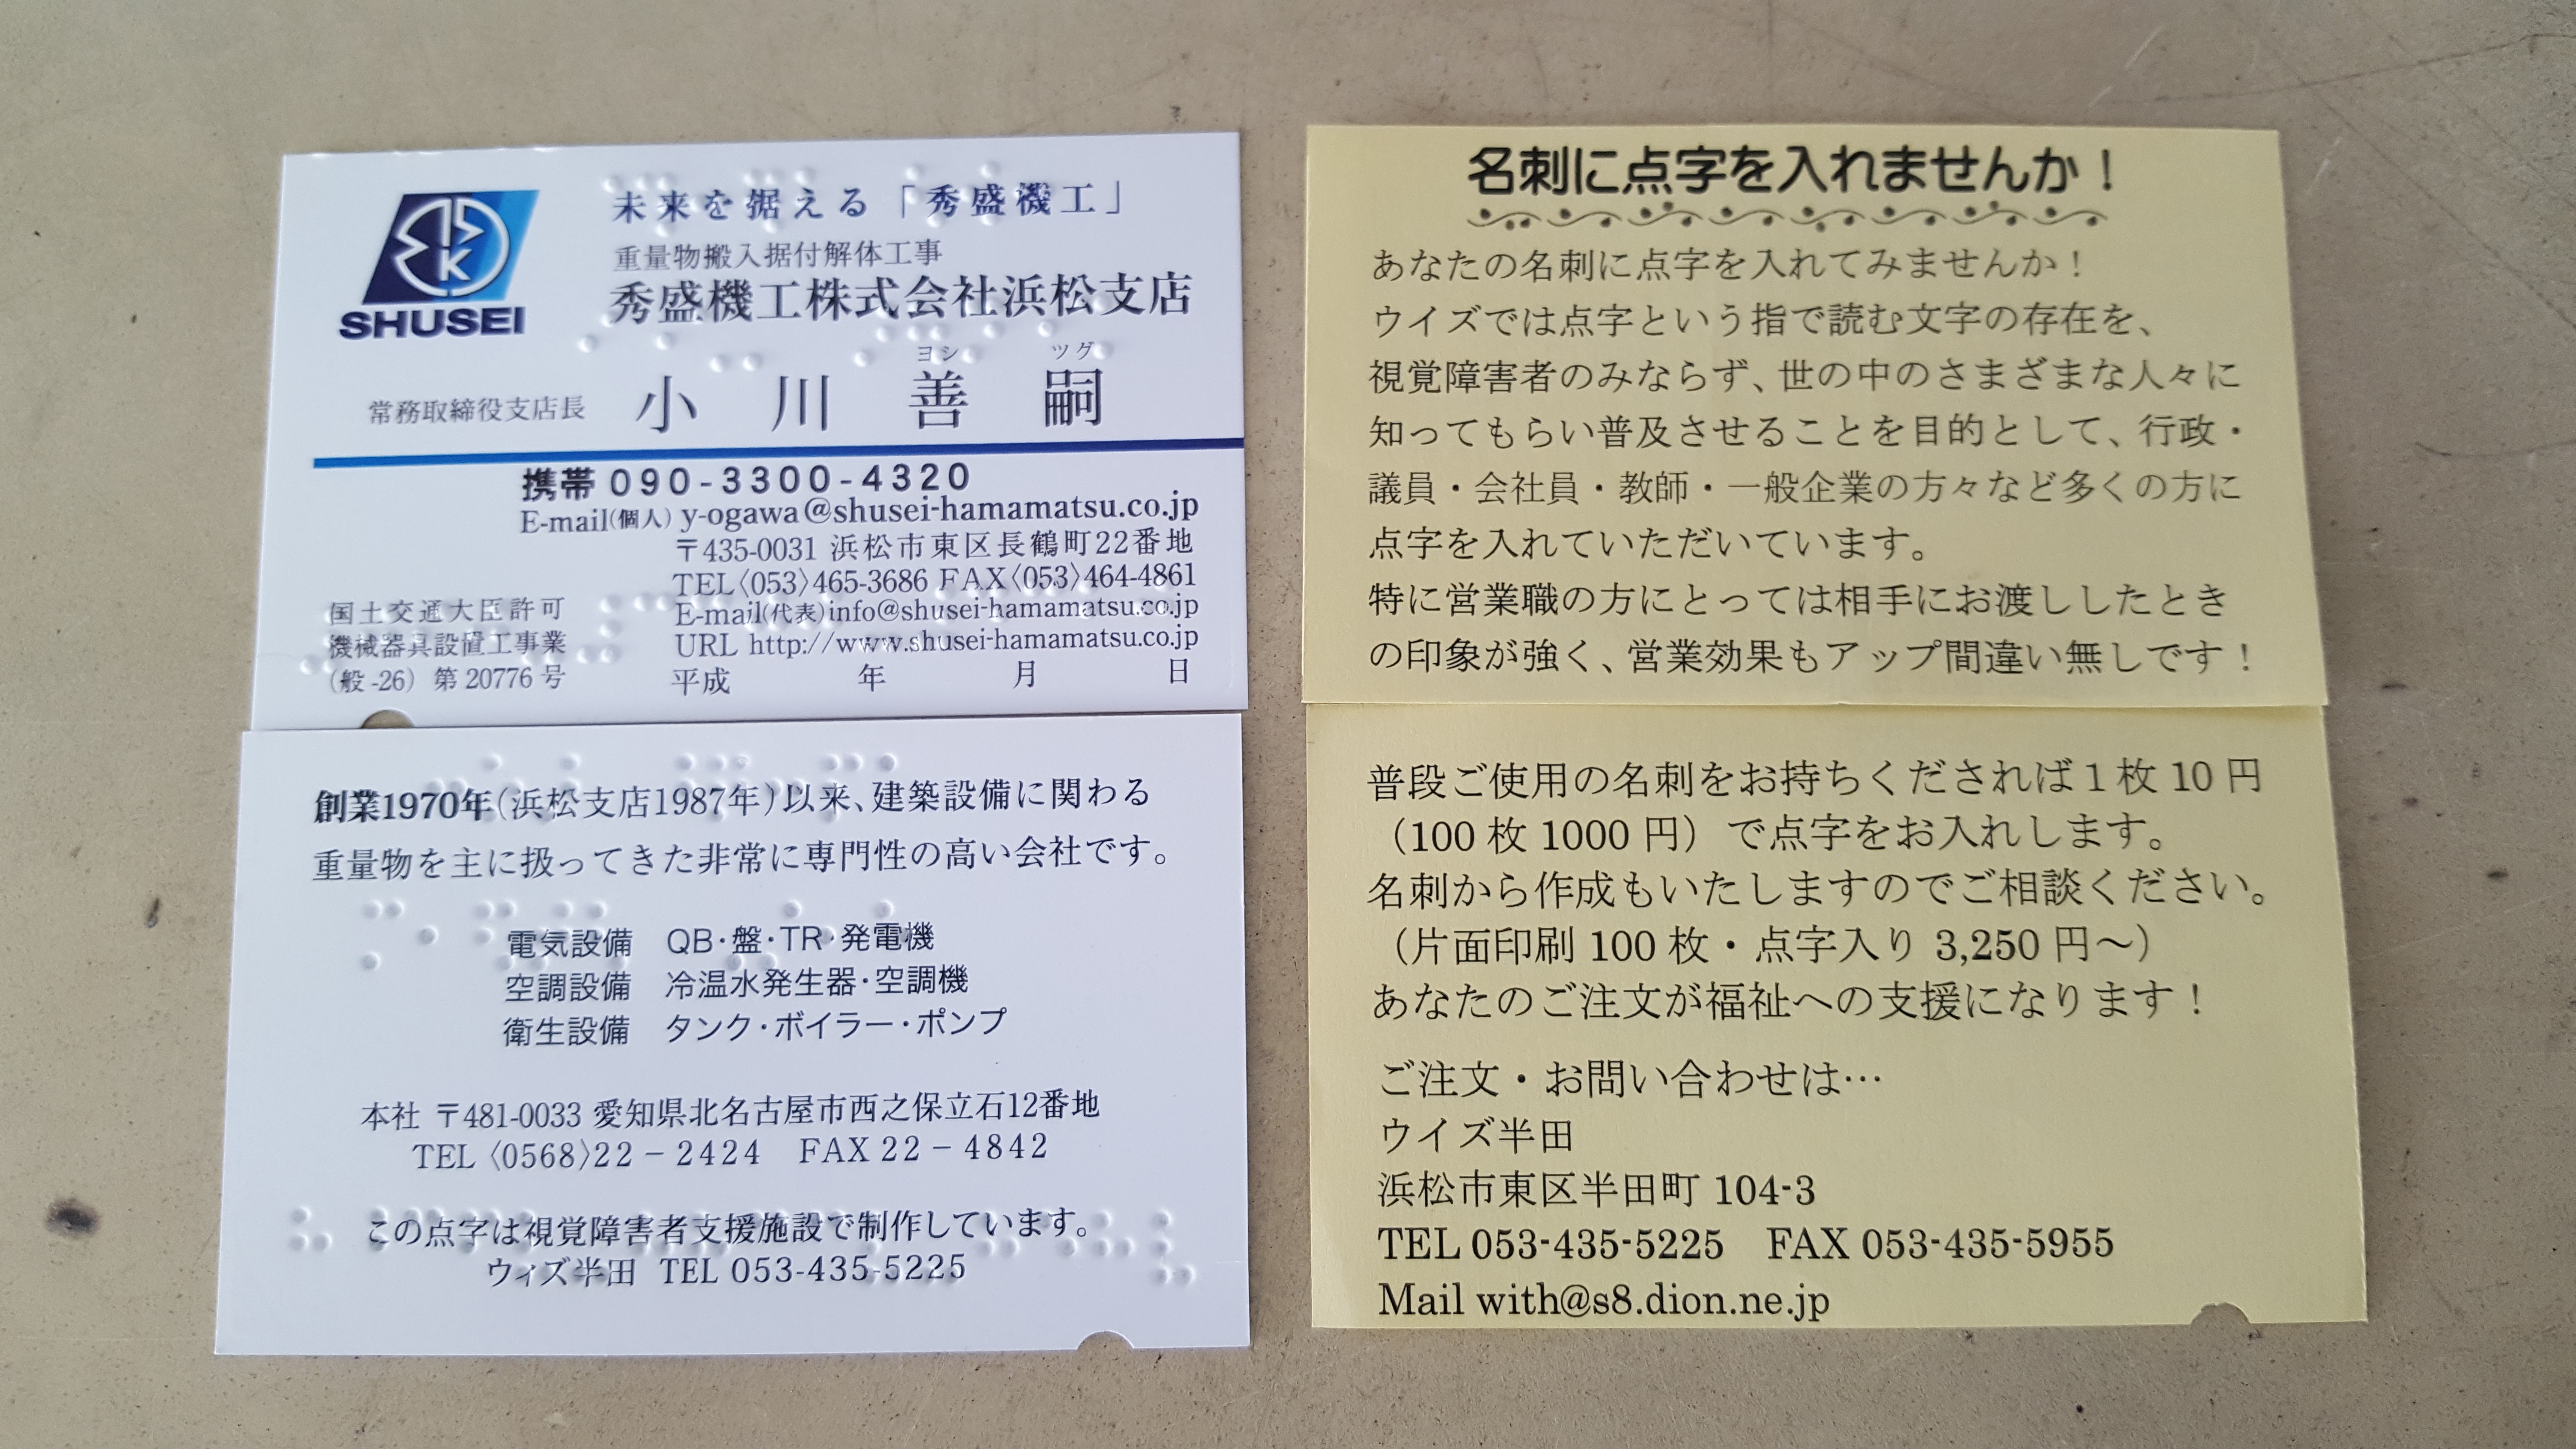 SHUSEI
未来を据える「秀盛機工」
重量物搬入据付解体工事
秀盛機工株式会社浜松支店
ヨシ ツグ
常務取締役支店長 小川善嗣
携帯 090-3300-4320
E-mail(個人) y-ogawa@shusei-hamamatsu.co.jp
〒435-0031 浜松市東区長鶴町22番地
TEL〈053〉465-3686 FAX〈053〉464-4861
E-mail(代表)info@shusei-hamamatsu.co.jp
URL http://www.shusei-hamamatsu.co.jp
平成 年 月 日
国土交通大臣許可
機械器具設置工事業
(般-26) 第20776号
創業1970年(浜松支店1987年)以来、建築設備に関わる
重量物を主に扱ってきた非常に専門性の高い会社です。
電気設備 QB・盤・TR・発電機
空調設備 冷温水発生器・空調機
衛生設備 タンク・ボイラー・ポンプ
本社 〒481-0033 愛知県北名古屋市西之保立石12番地
TEL〈0568〉22－2424 FAX 22－4842
この点字は視覚障害者支援施設で制作しています。
ウィズ半田 TEL 053-435-5225
名刺に点字を入れませんか！
あなたの名刺に点字を入れてみませんか！
ウイズでは点字という指で読む文字の存在を、
視覚障害者のみならず、世の中のさまざまな人々に
知ってもらい普及させることを目的として、行政・
議員・会社員・教師・一般企業の方々など多くの方に
点字を入れていただいています。
特に営業職の方にとっては相手にお渡ししたとき
の印象が強く、営業効果もアップ間違い無しです！
普段ご使用の名刺をお持ちくだされば1枚10円
（100枚1000円）で点字をお入れします。
名刺から作成もいたしますのでご相談ください。
（片面印刷100枚・点字入り 3,250円～）
あなたのご注文が福祉への支援になります！
ご注文・お問い合わせは…
ウイズ半田
浜松市東区半田町 104-3
TEL 053-435-5225 FAX 053-435-5955
Mail with@s8.dion.ne.jp